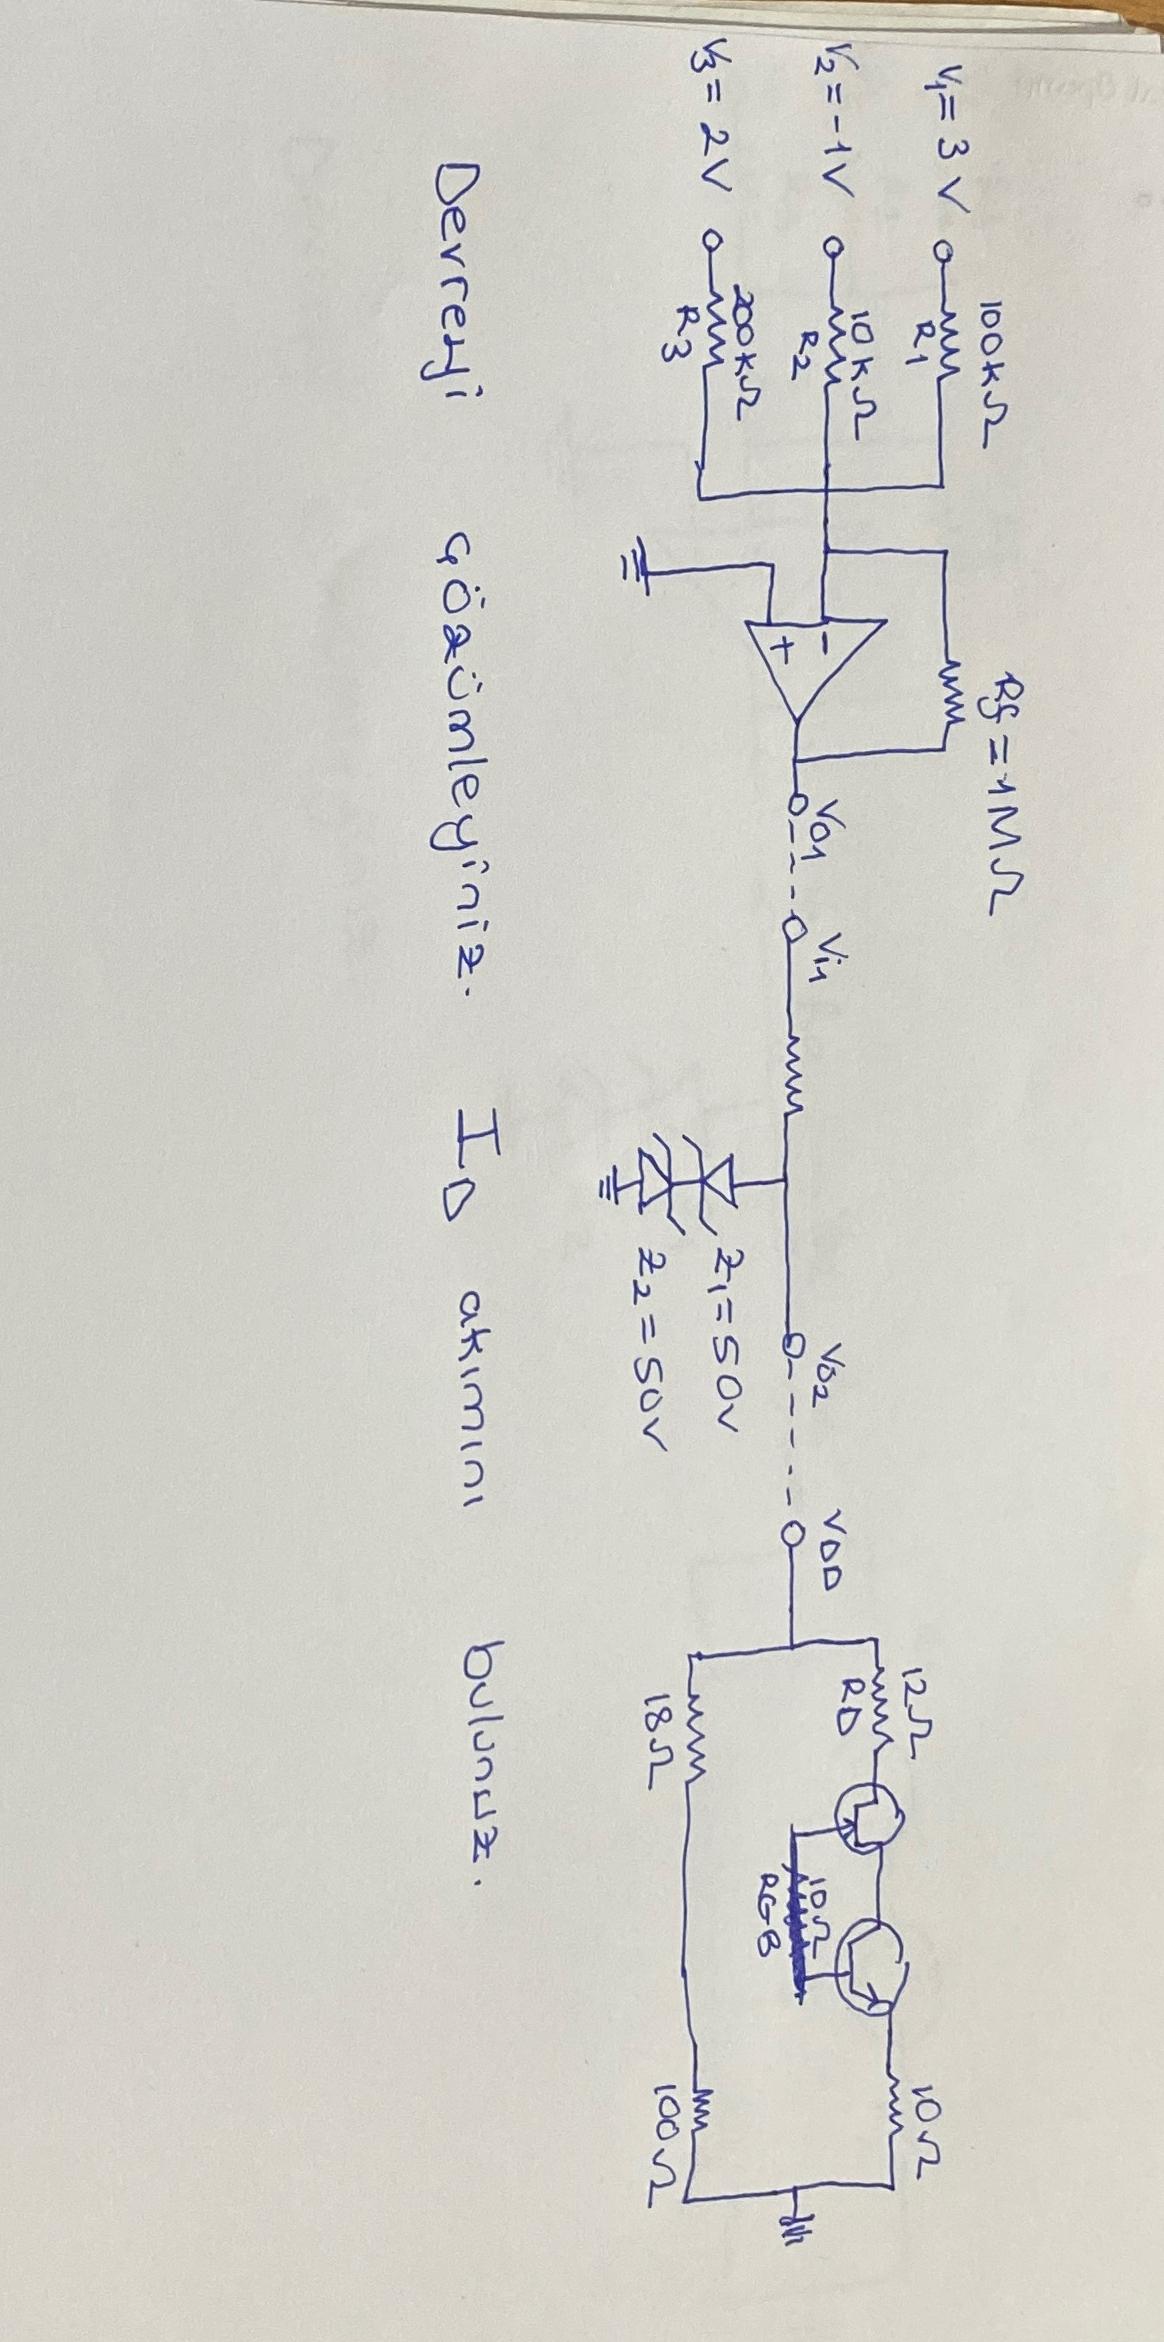 V1 = 3 V
100kΩ
R1
Rf = 1MΩ
V2 = -1V
10kΩ
R2
V3 = 2V
200kΩ
R3
-
+
Vo1
Vi1
Z1 = 50V
Z2 = 50V
Vo2
VDD
12Ω
RD
10Ω
RGB
10Ω
18Ω
100Ω
Devreyi çözümleyiniz. ID akımını bulunuz.